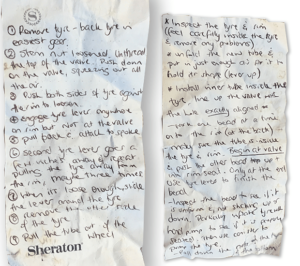 ① Remove tyre - back tyre in
easiest gear.
② Stem nut loosened, unthread
the top of the valve. Push down
on the valve, squeezing out all
the air.
③ Push both sides of tyre against
the rim to loosen.
④ engage tyre lever anywhere
on rim but not at the valve
⑤ pull back & attach to spoke.
⑥ second tyre lever goes a
few inches away, repeat
pulling the tyre away from
the rim, maybe three times
⑦ when its loose enough, slide
the lever around the tyre
⑧ Remove the other side
of the tyre
⑨ Pull the tube out of the
wheel!
Sheraton
* Inspect the tyre & rim
(feel carefully inside the tyre
& remove any problems)
* unfold the next tube &
put in just enough air for it to
hold its shape
* Install inner tube inside the
tyre, line up the valve with
the hole exactly aligned
work one bead at a time
make sure the tube is inside
the tyre & rim. Begin at valve
& push the other bead
rim Only at the end
use tyre lever to finish the
bead.
Inspect the bead to see if it
is uniform & not sticking up or
down.
pump the tyre.